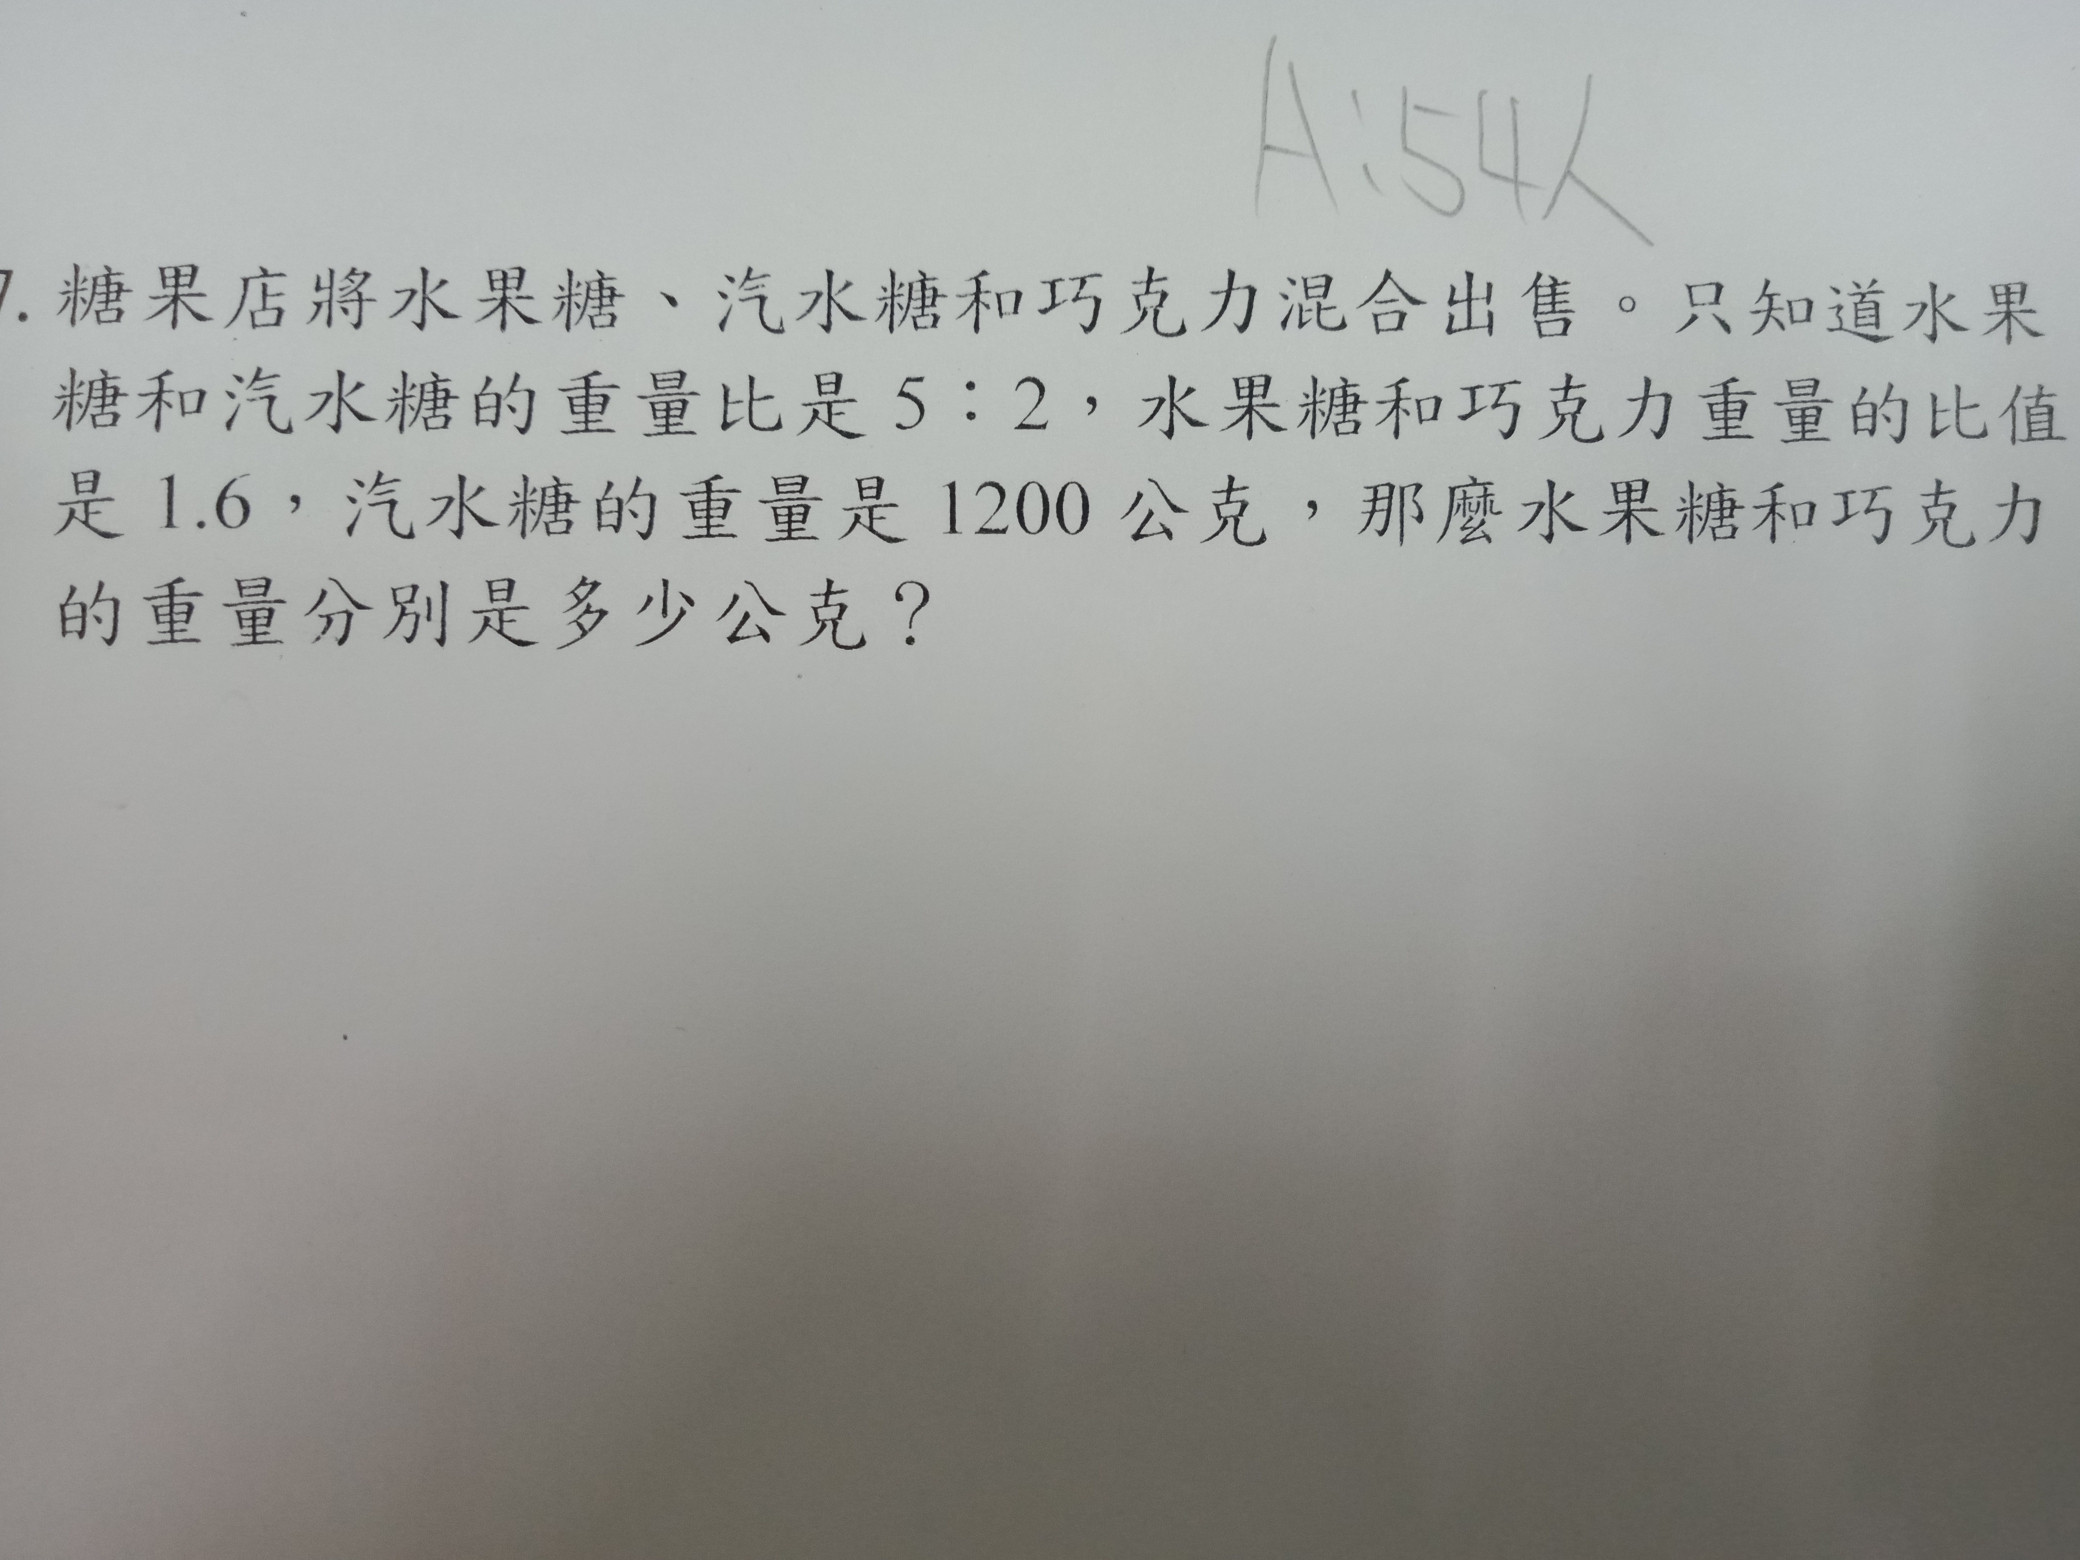 A:54人
7. 糖果店將水果糖、汽水糖和巧克力混合出售。只知道水果
糖和汽水糖的重量比是 5:2,水果糖和巧克力重量的比值
是 1.6,汽水糖的重量是 1200 公克,那麼水果糖和巧克力
的重量分別是多少公克?